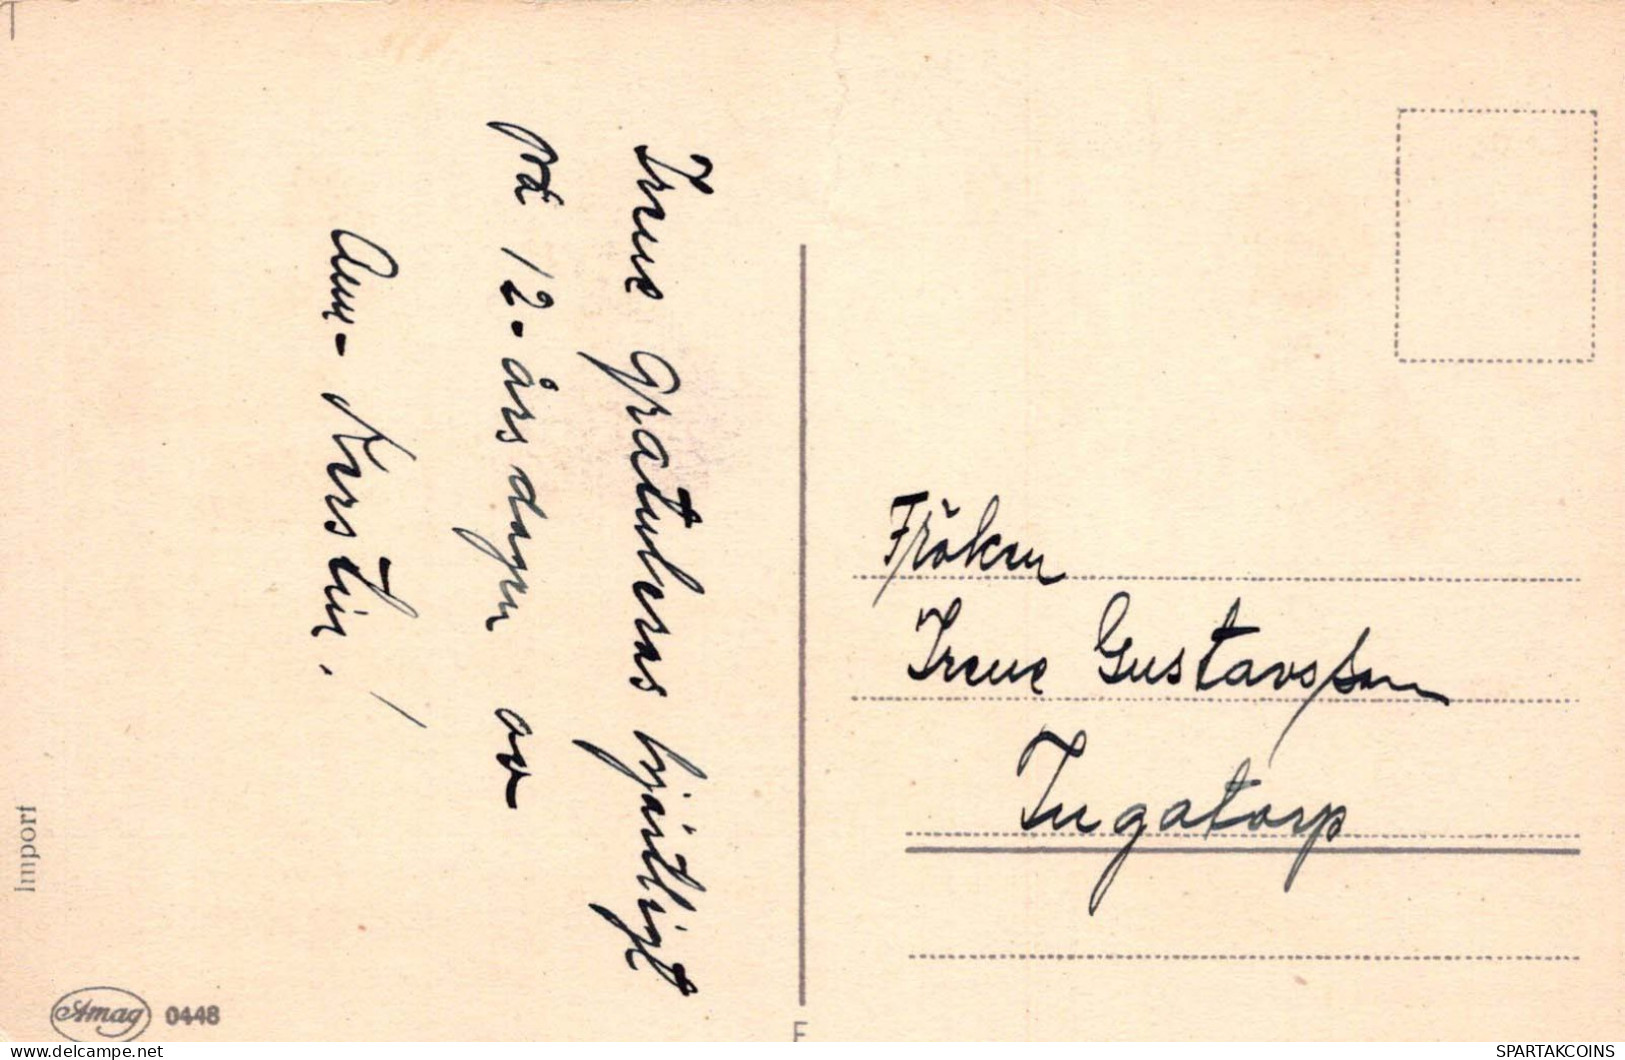 Irene Gratuleras hjärtligt
på 12-års dagen av
Ann-Kerstin. /
Fröken
Irene Gustavsson
Ingatorp
Import
Amag 0448
E
SPARTAKCOINS
https://www.delcampe.net